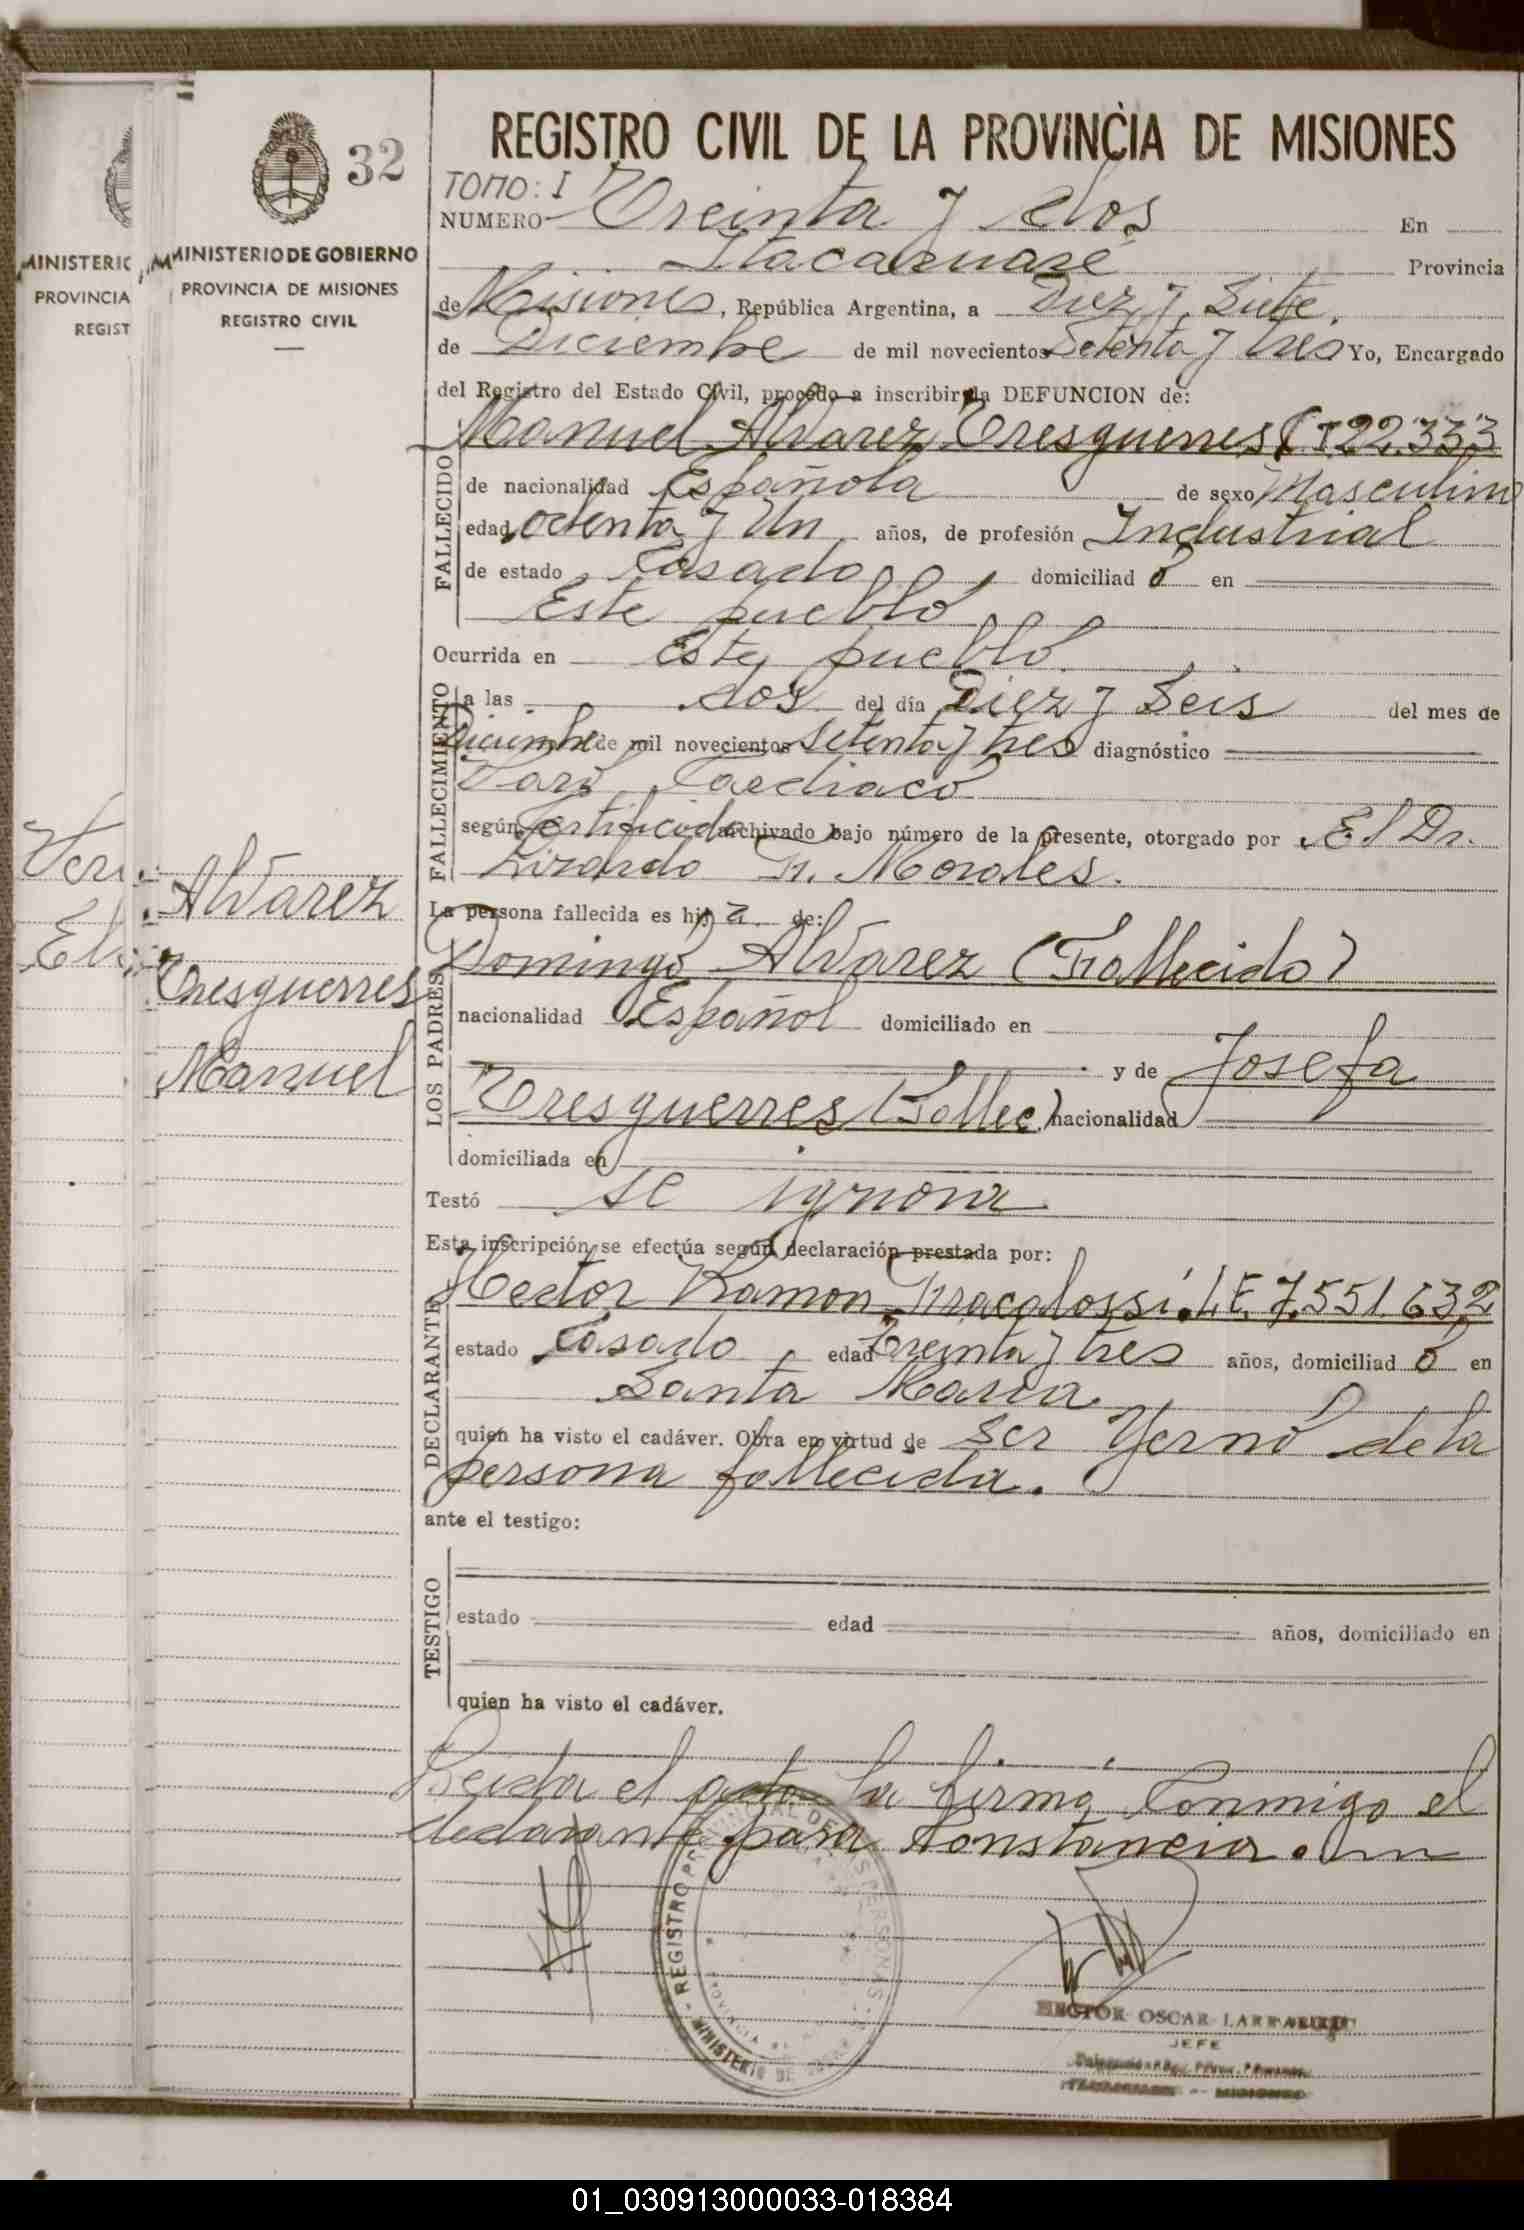 MINISTERIO DE GOBIERNO
PROVINCIA DE MISIONES
REGISTRO CIVIL
32
MINISTERIO
PROVINCIA
REGIST
Alvarez
Tresguerres
Manuel
REGISTRO CIVIL DE LA PROVINCIA DE MISIONES
TOMO: I
NUMERO Treinta y dos En
Itacaruaré Provincia
de Misiones, República Argentina, a Diez y Siete.
de Diciembre de mil novecientos Setenta y tres Yo, Encargado
del Registro del Estado Civil, procedo a inscribir la DEFUNCION de:
Manuel Alvarez Tresguerres (I 22.333
FALLECIDO
de nacionalidad Española de sexo Masculino
edad Ochenta y Un años, de profesión Industrial
de estado Casado domiciliad o en
Este pueblo
Ocurrida en Este pueblo.
FALLECIMIENTO
a las dos del día Diez y Seis del mes de
Diciembre de mil novecientos Setenta y tres diagnóstico
Paro Cardiaco
según Certificado archivado bajo número de la presente, otorgado por El Dr.
Lizardo Fr. Morales.
La persona fallecida es hij a de:
LOS PADRES
Domingo Alvarez (Fallecido)
nacionalidad Español domiciliado en
y de Josefa
Tresguerres (Fallec.) nacionalidad
domiciliada en
Testó se ignora
Esta inscripción se efectúa según declaración prestada por:
DECLARANTE
Hector Ramon Fracalossi. L.E. 7.551.632
estado Casado edad Treinta y tres años, domiciliad o en
Santa Maria
quien ha visto el cadáver. Obra en virtud de ser Yerno de la
persona fallecida.
ante el testigo:
TESTIGO
estado edad años, domiciliado en
quien ha visto el cadáver.
Leida el acta la firma Conmigo el
declarante para Constancia.
REGISTRO PROVINCIAL DE LAS PERSONAS
MINISTERIO DE
HECTOR OSCAR
JEFE
01_030913000033-018384